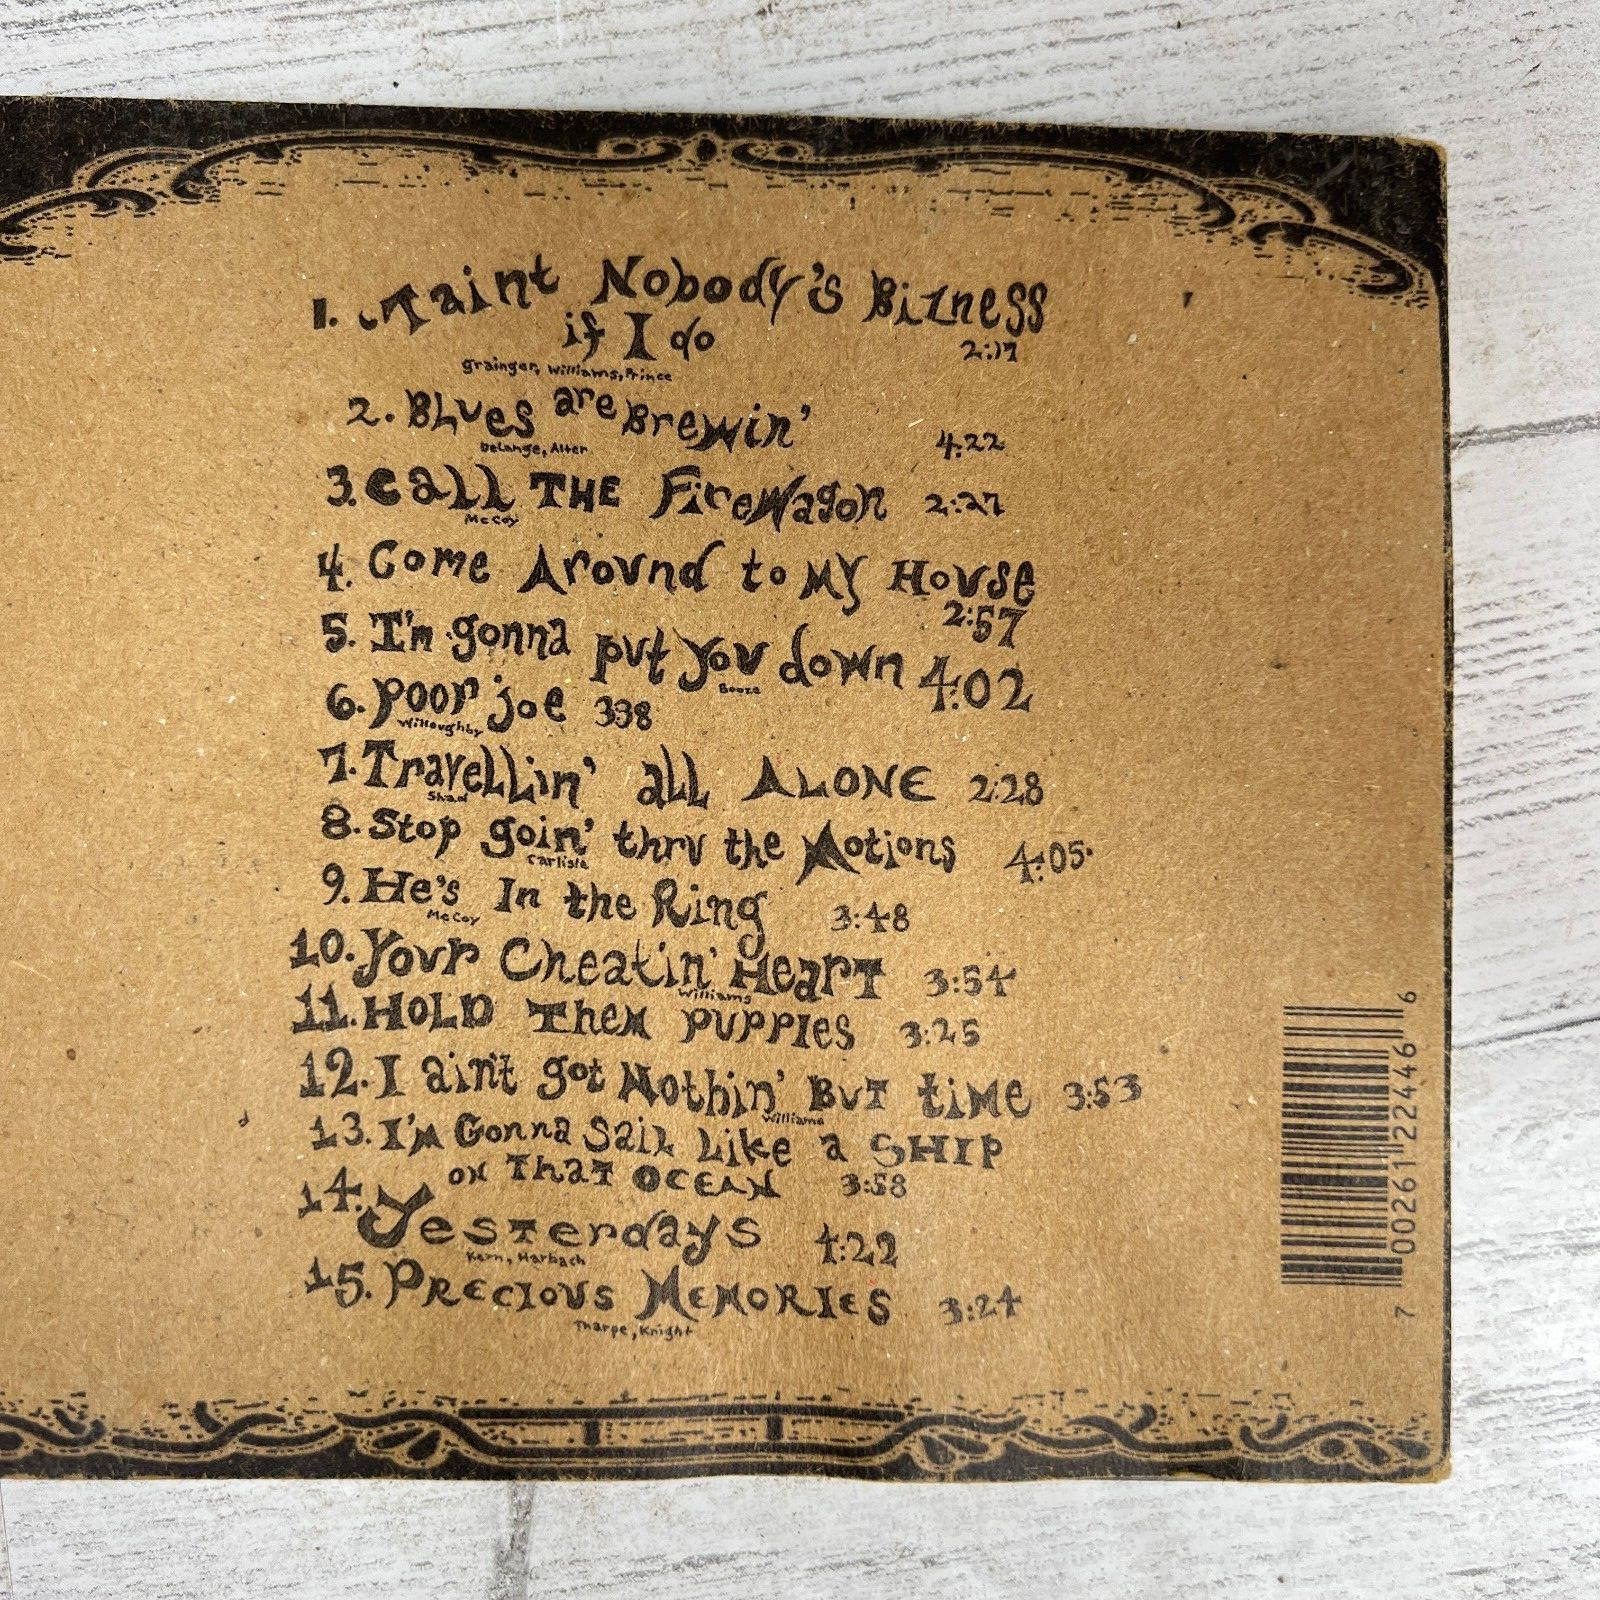 1. 'Taint Nobody's Bizness
if I do 2:17
Grainger, Williams, Prince
2. Blues are Brewin' 4:22
DeLange, Alter
3. Call THE FireWagon 2:27
McCoy
4. Come Around to My House
2:57
5. I'm gonna put you down 4:02
Booze
6. Poor joe 3:38
Willoughby
7. Travellin' all ALONE 2:28
Shaw
8. Stop goin' thru the Motions 4:05
Carlisle
9. He's In the Ring 3:48
McCoy
10. Your Cheatin' Heart 3:54
Williams
11. HOLD Them puppies 3:25
12. I ain't got Nothin' But time 3:53
Williams
13. I'm Gonna Sail Like a SHIP
on That OCEAN 3:58
14. Yesterdays 4:22
Kern, Harbach
15. Precious Memories 3:24
Tharpe, Knight
7 00261 22446 6